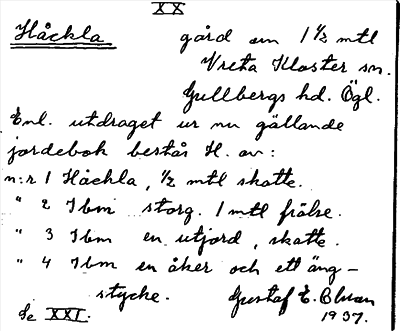 XX
Håckla gård om 1 1/2 mtl
Vreta Kloster sn.
Gullbergs hd. Ögl.
Enl. utdraget ur nu gällande
jordebok består H. av:
n:r 1 Håckla, 1/2 mtl skatte.
" 2 Ibm storg. 1 mtl frälse.
" 3 Ibm en utjord, skatte.
" 4 Ibm en åker och ett äng-
stycke. Gustaf E.
Se XXI. 1937.